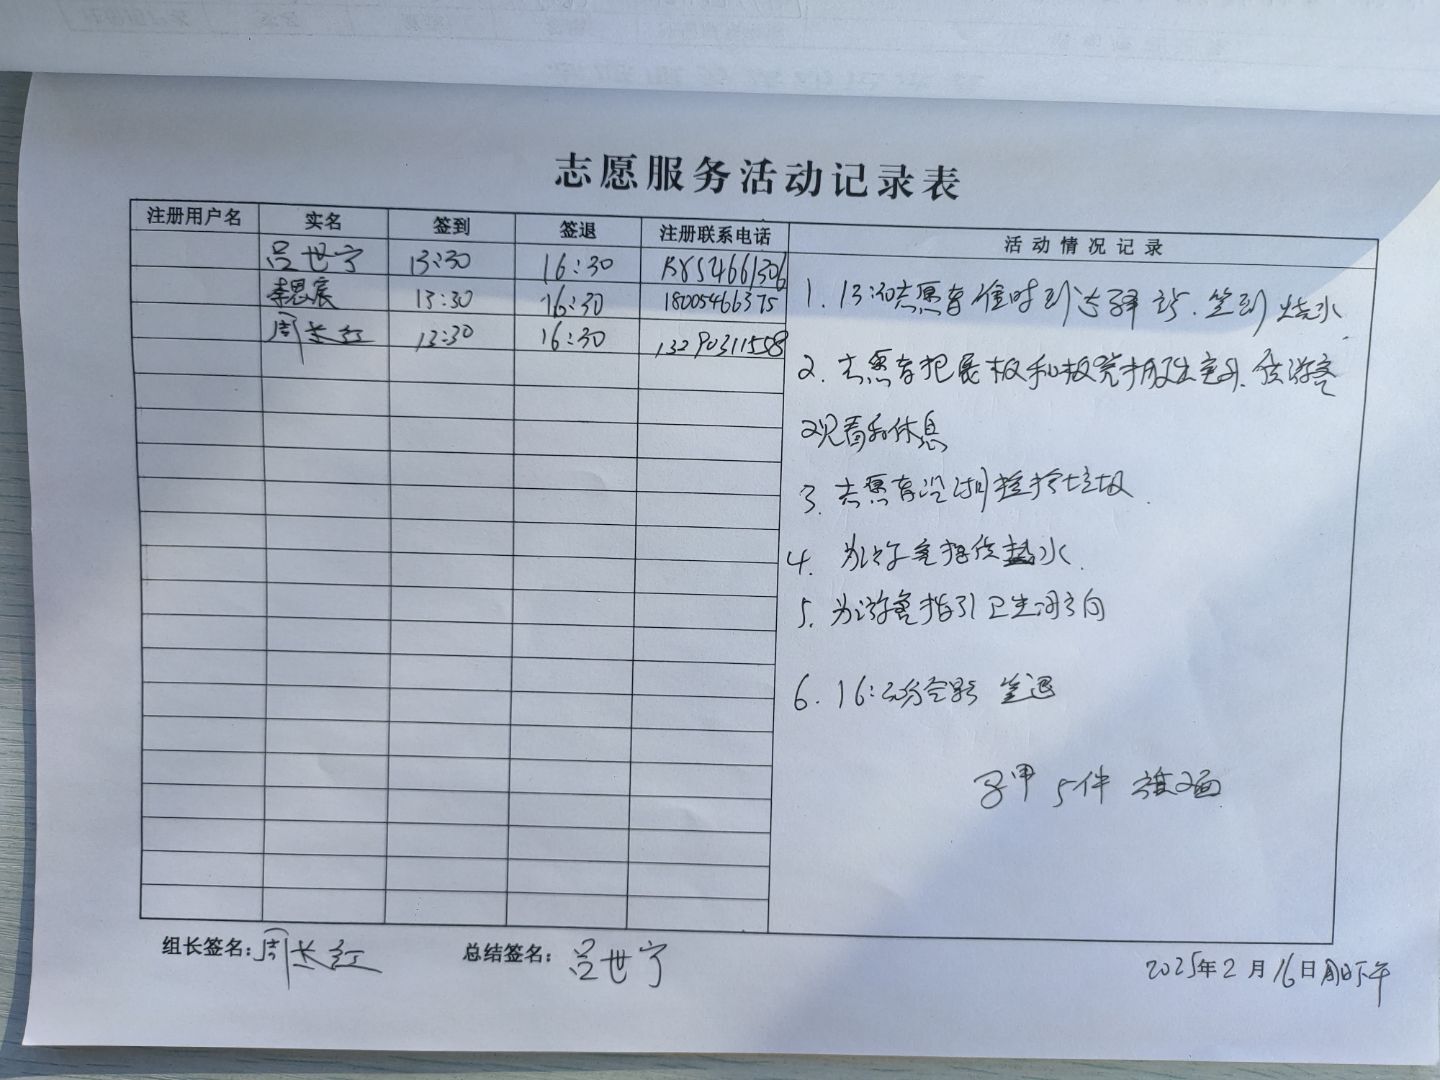 志愿服务活动记录表
注册用户名 实名 签到 签退 注册联系电话 活动情况记录
吕世宁 13:30 16:30
李思宸 13:30 16:30 18005466375
周长红 13:30 16:30 13290311558
1. 13:30志愿者准时到达驿站.签到 烧水.
2. 志愿者把展板和板凳搬至室外.供游客
观看和休息
3. 志愿者沿湖捡拾垃圾.
4. 为游客提供热水.
5. 为游客指引卫生间方向
6. 16:30分合影 签退
马甲 5件 旗2面
组长签名:周长红 总结签名:吕世宁
2025年2月16日周日下午